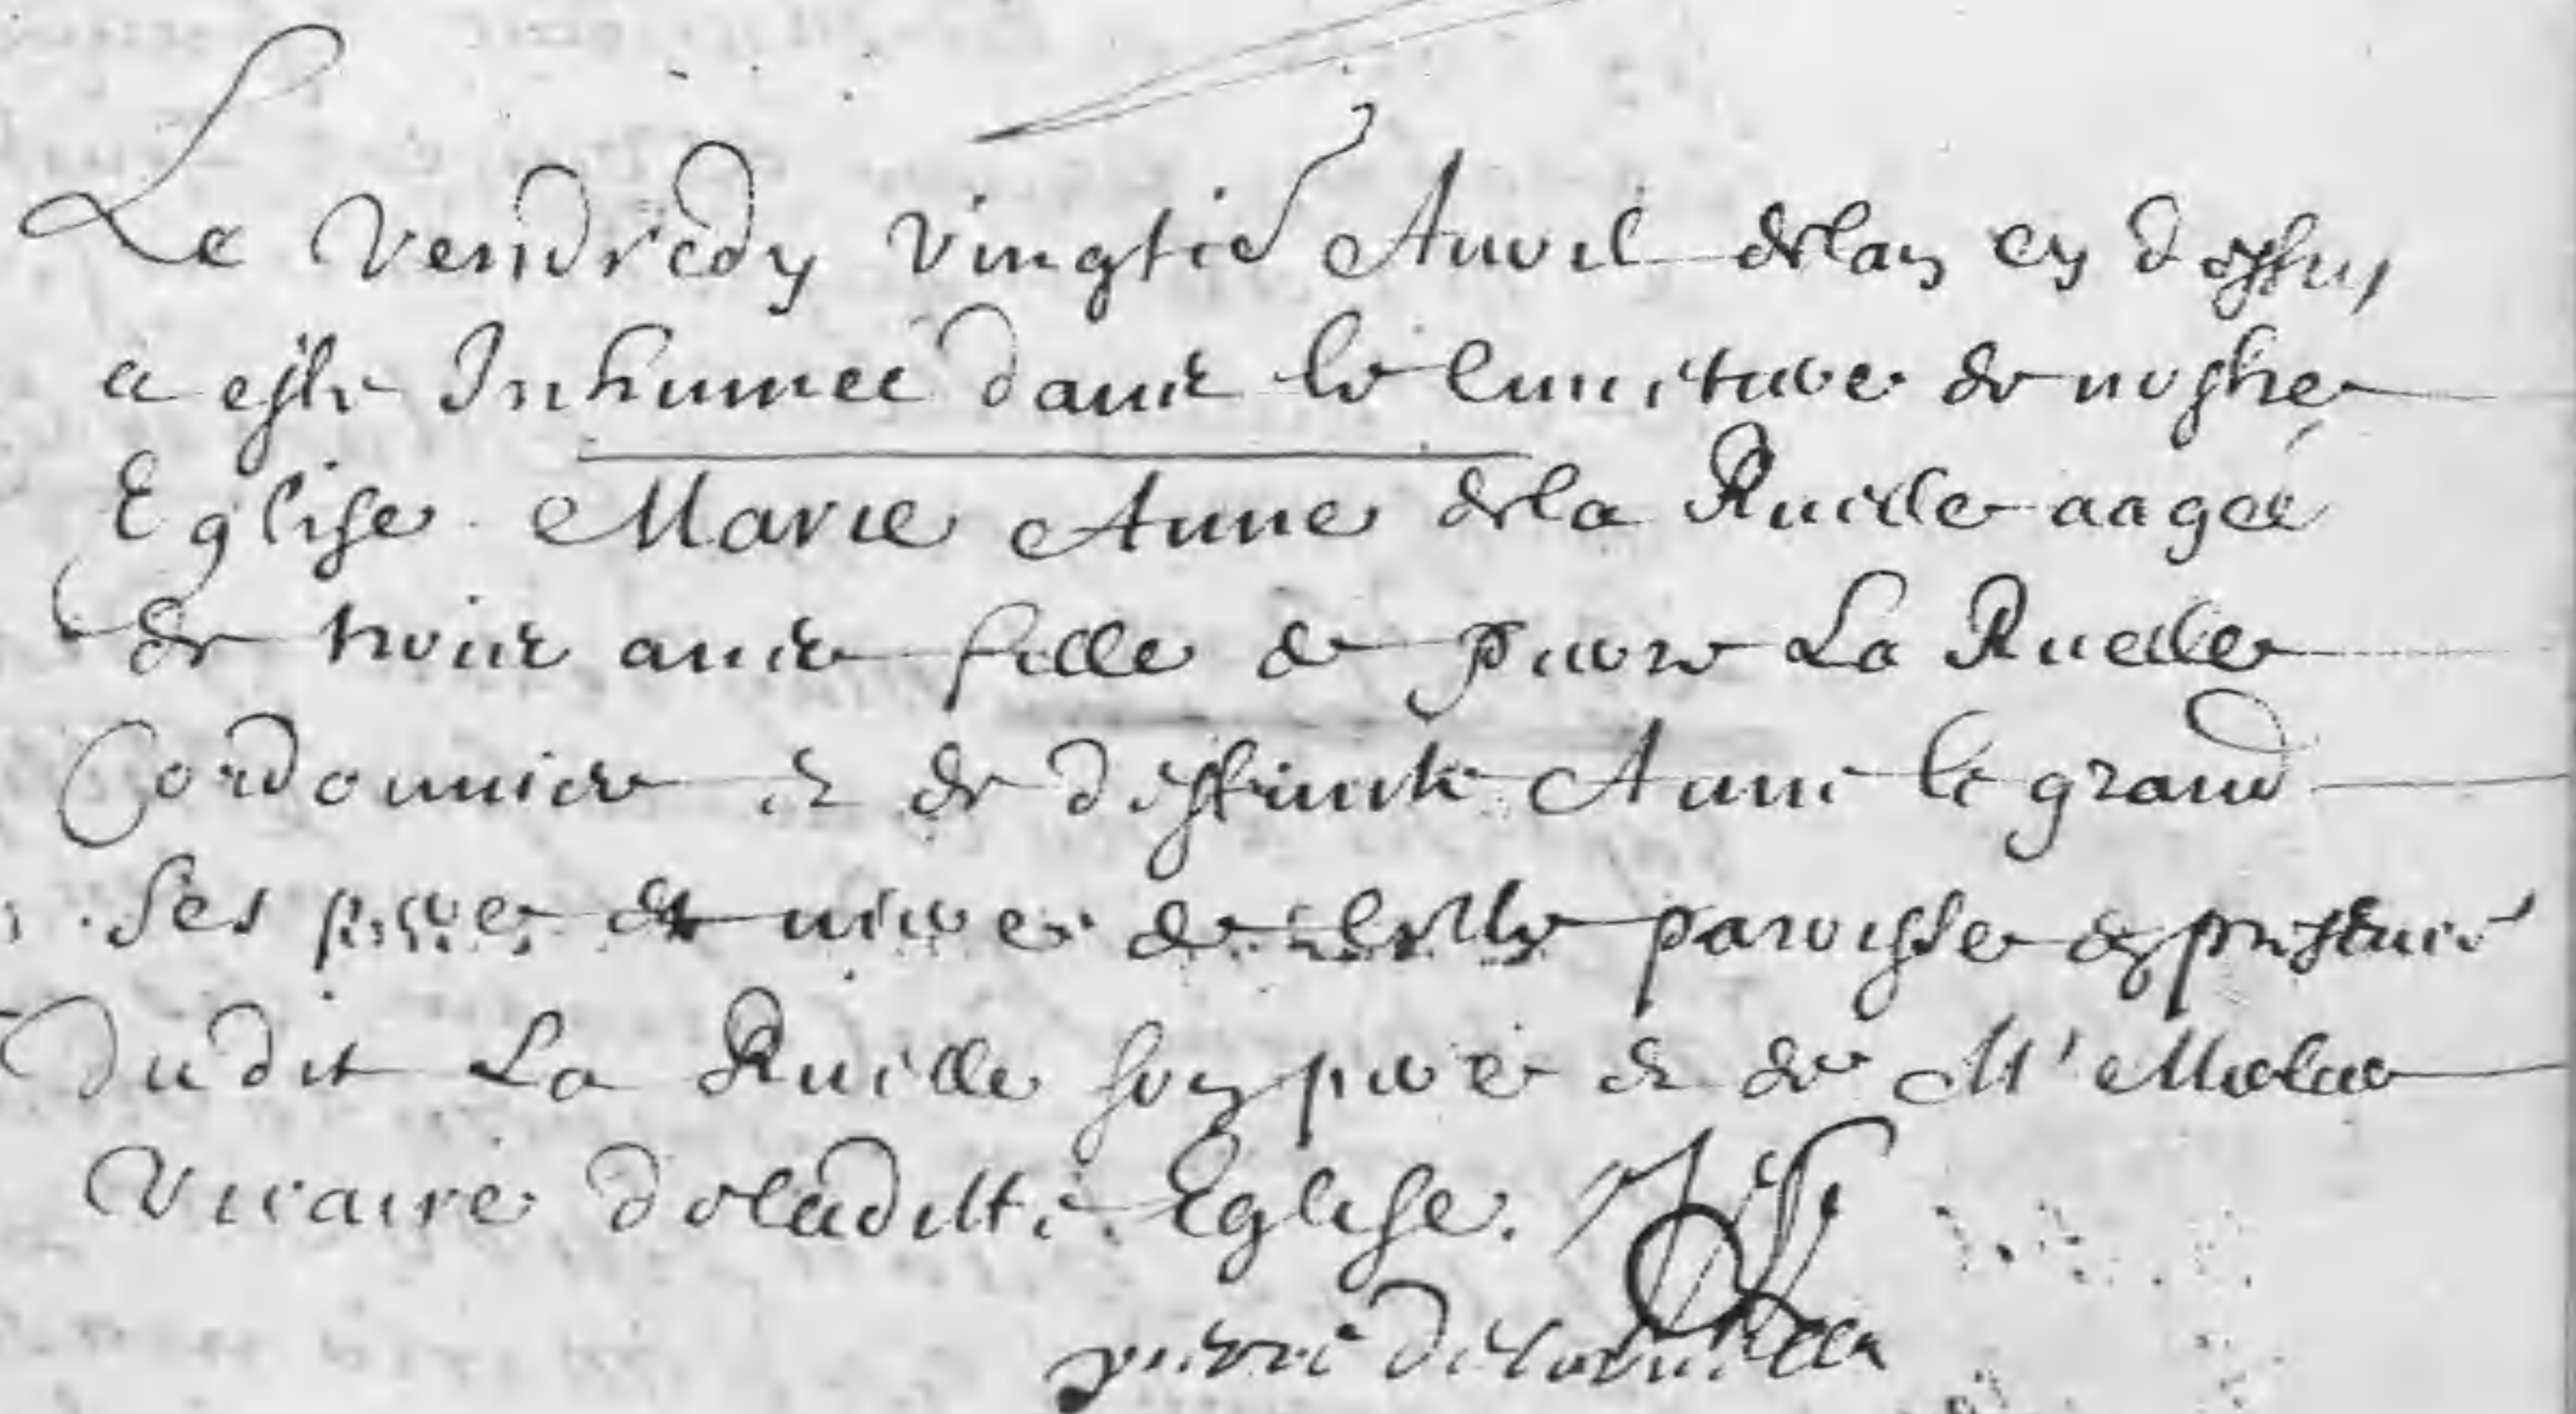 Le Vendredy vingtie Auril de lan cy dessus
a este Inhumee dans le Cimetiere de nostre
Eglise Marie Anne de la Ruelle aagée
de trois ans fille de pierre La Ruelle
Cordonnier et de deffuncte Anne le grand
ses pere et mere de cette paroisse es presence
Dudit La Ruelle son pere et de Mr
Vicaire de laditte Eglise.
pierre de laruelle